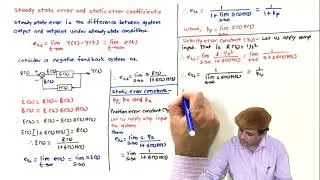 Steady state error and static error coefficients
Steady state error is the difference between system
output and setpoint under steady state conditions
e_ss = lim t→∞ r(t) - y(t) = lim t→∞ e(t)
Consider a negative feedback system as
R(s) E(s) G(s) Y(s)
H(s)
E(s) = R(s) - B(s)
E(s) = R(s) - E(s)G(s)H(s)
E(s)[1+G(s)H(s)] = R(s)
∴ E(s) = R(s) / 1+G(s)H(s)
e_ss = lim t→∞ e(t) = lim s→0 sE(s)
∴ e_ss = lim s→0 s R(s) / 1+G(s)H(s)
Static error constants:
kp, kv and ka
Position error constant
Let us apply step input
the system
Then
e_ss = lim s→0 s · 1/s / 1+G(s)H(s)
= lim s→0 1 / 1+G(s)H(s)
∴ e_ss = 1 / 1+lim s→0 G(s)H(s) = 1 / 1+kp
where, kp = lim s→0 G(s)H(s)
Velocity error constant (kv): Let us apply ramp
input. That is R(s) = 1/s²
∴ e_ss
= 1 / lim s→0 sG(s)H(s) = 1 / kv